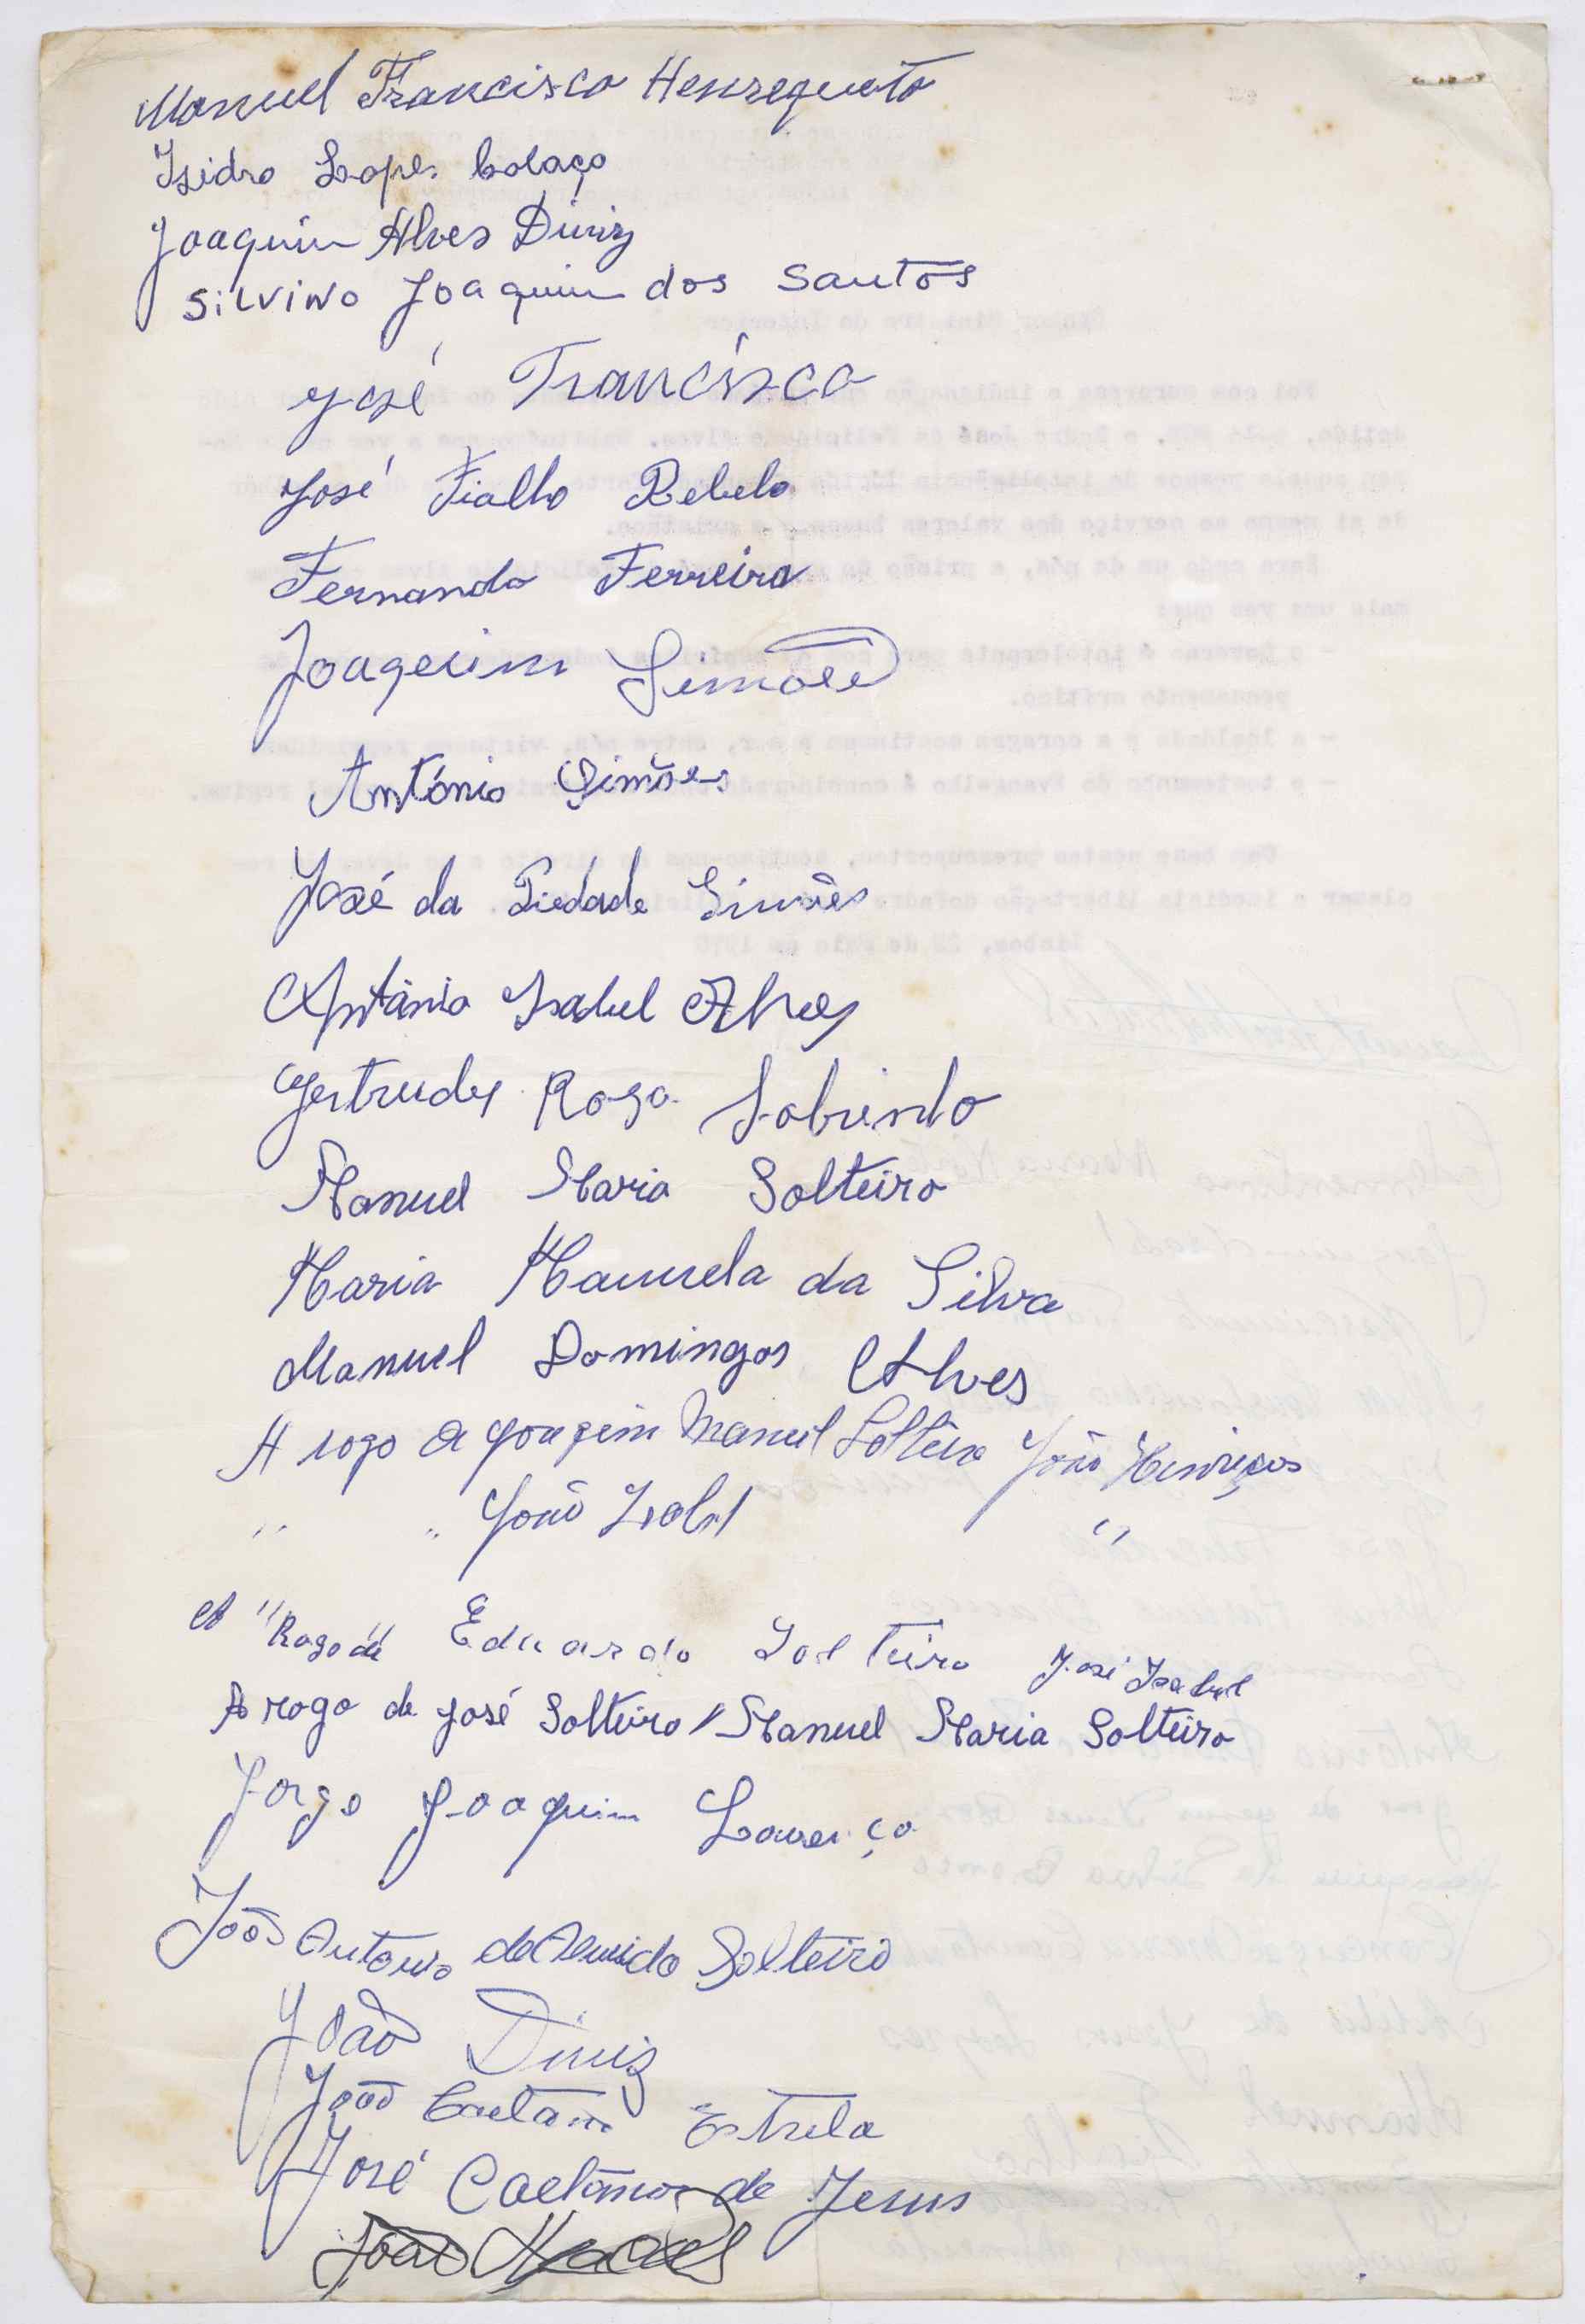 Manuel Francisco Henrequeto
Isidro Lopes Colaço
Joaquim Alves Diniz
Silvino Joaquim dos Santos
José Francisco
José Fialho Rebelo
Fernando Ferreira
Joaqeuim Simões
António Simões
José da Piedade Simões
António Isabel Alves
Gertrudes Rosa Sobrinho
Manuel Maria Solteiro
Maria Manuela da Silva
Manuel Domingos Alves
A rogo de Joaqeim Manuel Solteiro João Henriques
" " João Isabel "
A "Rogo de" Eduardo Solteiro José Isabel
A rogo de José Solteiro / Manuel Maria Solteiro
Jorge Joaquim Lourenço
João António de Solteiro
João Diniz
João Caetano Estrela
José Caetano de Jesus
João